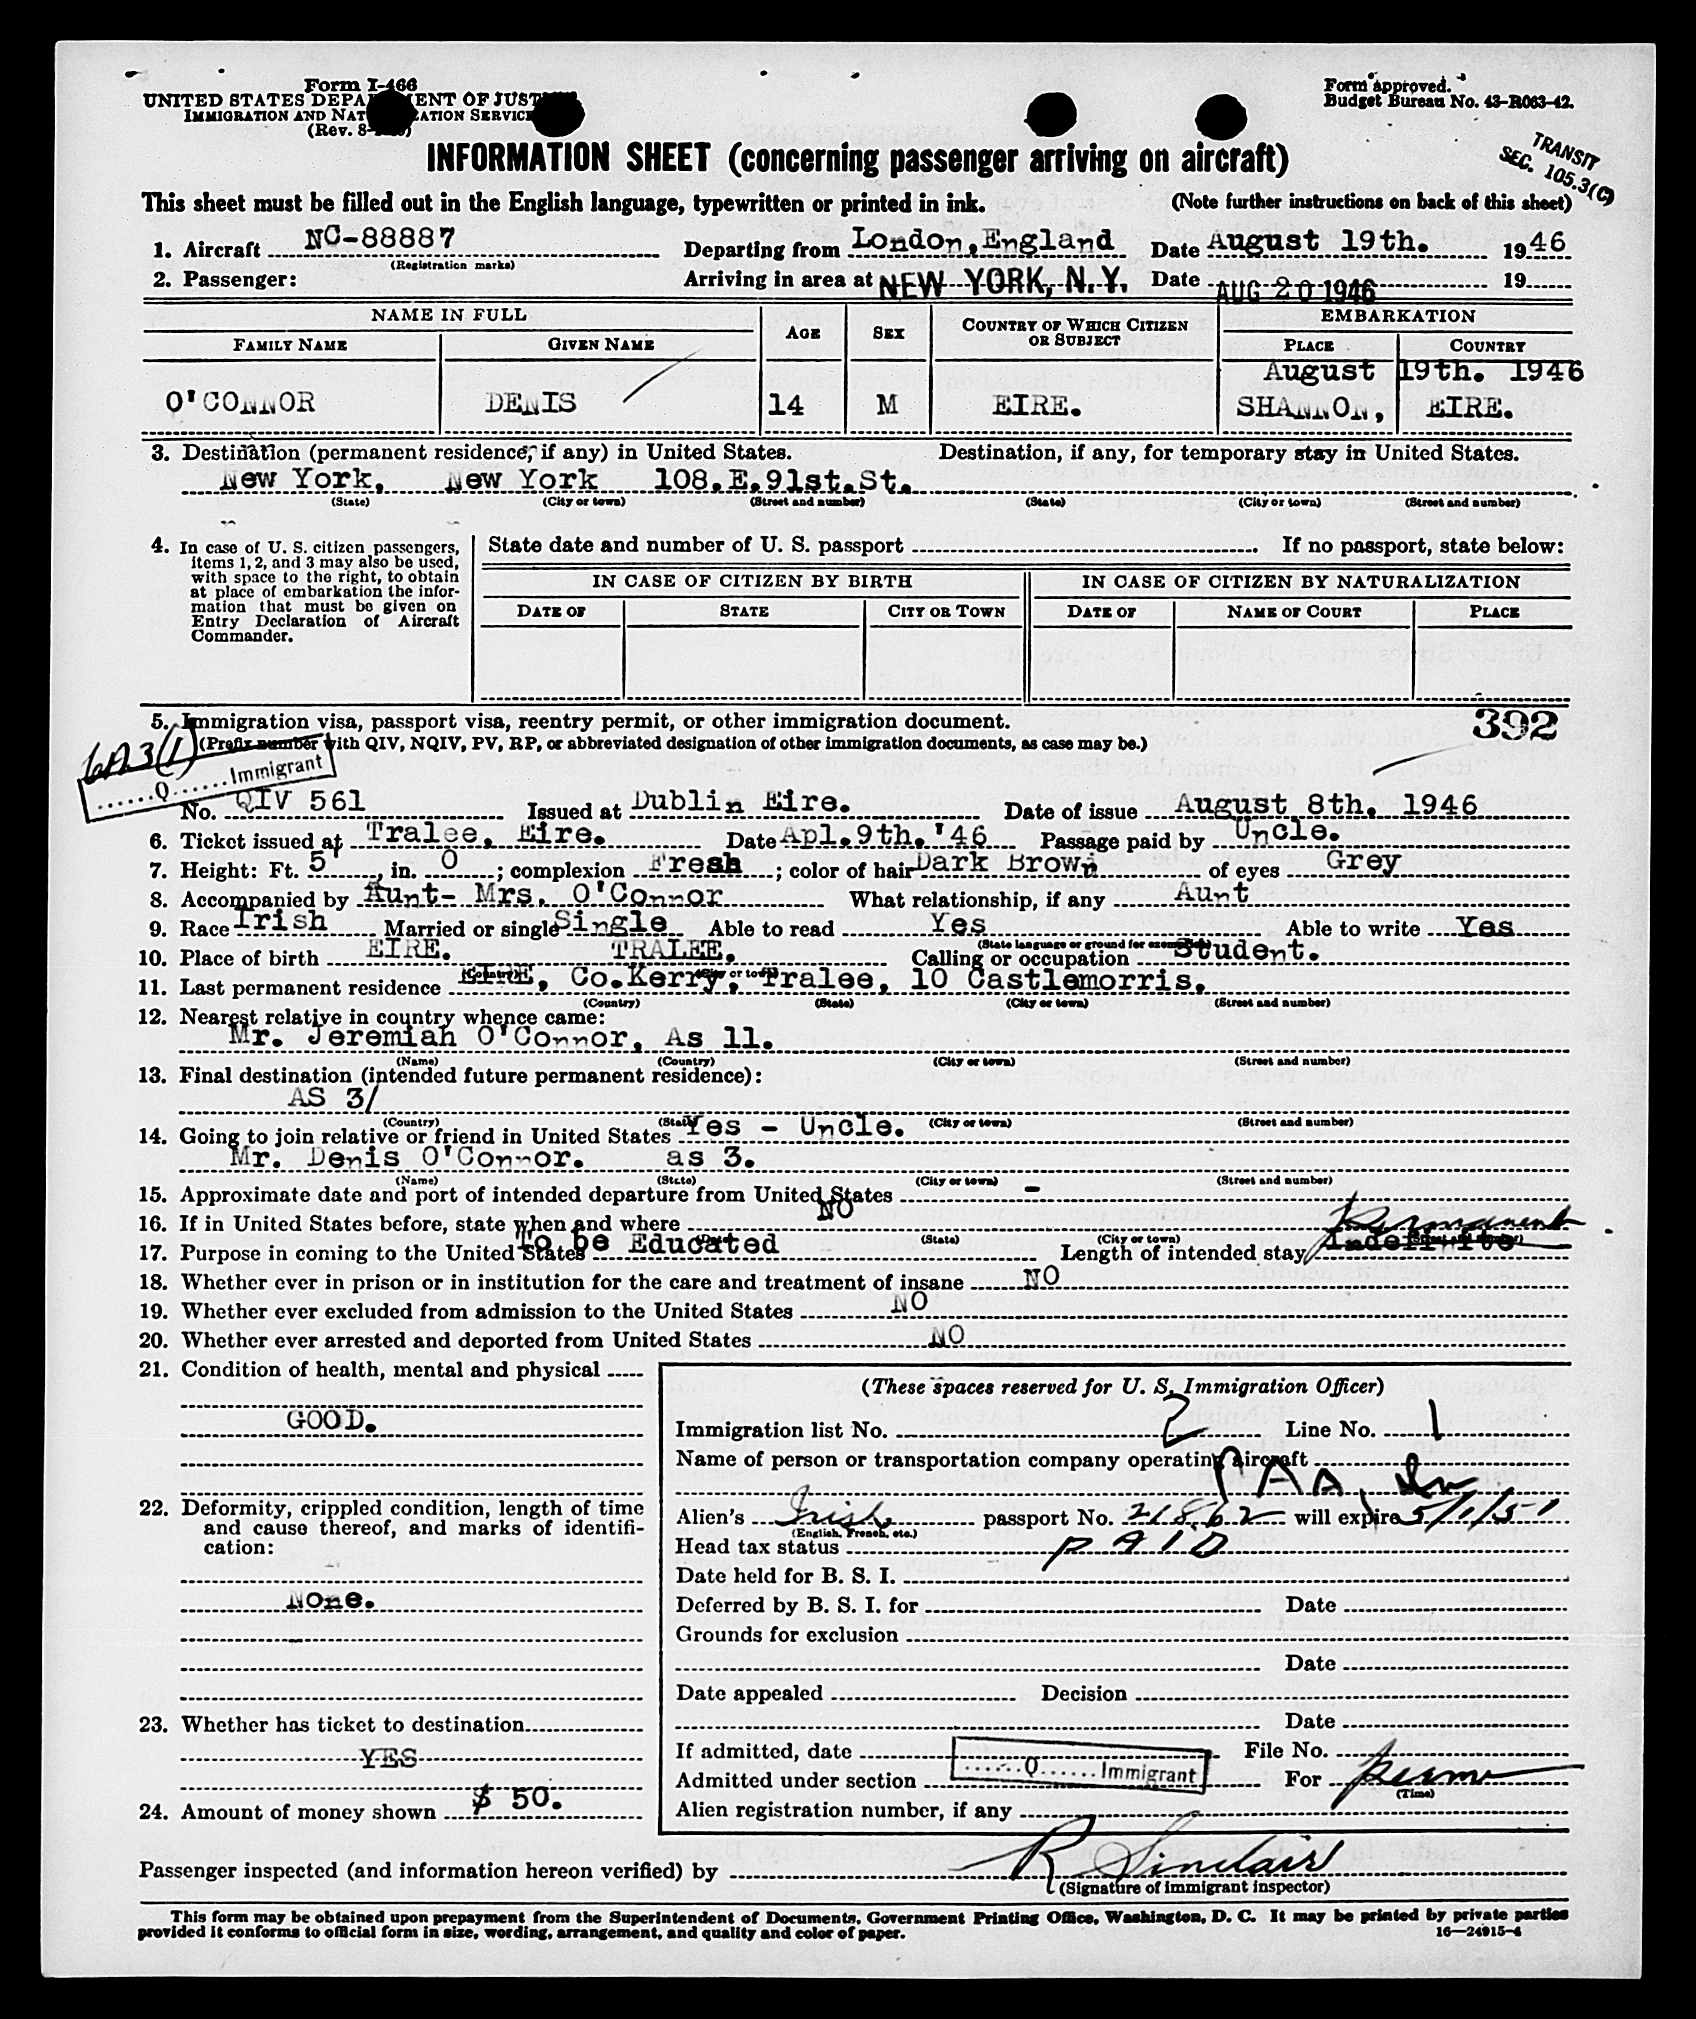 Form I-466
UNITED STATES DEPARTMENT OF JUSTICE
IMMIGRATION AND NATURALIZATION SERVICE
(Rev. 8-
Form approved.
Budget Bureau No. 43-R063-42.
TRANSIT
SEC. 105.3(C)
INFORMATION SHEET (concerning passenger arriving on aircraft)
This sheet must be filled out in the English language, typewritten or printed in ink. (Note further instructions on back of this sheet)
1. Aircraft NC-88887 Departing from London,England Date August 19th. 1946
(Registration marks)
2. Passenger: Arriving in area at NEW YORK, N.Y. Date AUG 20 1946 19
NAME IN FULL AGE SEX COUNTRY OF WHICH CITIZEN OR SUBJECT EMBARKATION
FAMILY NAME GIVEN NAME PLACE COUNTRY
August 19th. 1946
O'CONNOR DENIS 14 M EIRE. SHANNON, EIRE.
3. Destination (permanent residence, if any) in United States. Destination, if any, for temporary stay in United States.
New York, New York 108.E.91st.St.
(State) (City or town) (Street and number) (State) (City or town) (Street and number)
4. In case of U. S. citizen passengers, items 1, 2, and 3 may also be used, with space to the right, to obtain at place of embarkation the information that must be given on Entry Declaration of Aircraft Commander.
State date and number of U. S. passport . If no passport, state below:
IN CASE OF CITIZEN BY BIRTH IN CASE OF CITIZEN BY NATURALIZATION
DATE OF STATE CITY OR TOWN DATE OF NAME OF COURT PLACE
5. Immigration visa, passport visa, reentry permit, or other immigration document.
392
(Prefix number with QIV, NQIV, PV, RP, or abbreviated designation of other immigration documents, as case may be.)
6A3(1)
Q Immigrant
No. QIV 561 Issued at Dublin Eire. Date of issue August 8th. 1946
6. Ticket issued at Tralee, Eire. Date Apl.9th.'46 Passage paid by Uncle.
7. Height: Ft. 5' , in. 0 ; complexion Fresh ; color of hair Dark Brown of eyes Grey
8. Accompanied by Aunt- Mrs. O'Connor What relationship, if any Aunt
9. Race Irish Married or single Single Able to read Yes Able to write Yes
(State language or ground for exemption)
10. Place of birth EIRE. TRALEE. Calling or occupation Student.
(Country) (City or town)
11. Last permanent residence EIRE, Co.Kerry, Tralee, 10 Castlemorris.
(Country) (State) (City or town) (Street and number)
12. Nearest relative in country whence came:
Mr. Jeremiah O'Connor, As 11.
(Name) (Country) (City or town) (Street and number)
13. Final destination (intended future permanent residence):
AS 3/
(Country) (State) (City or town) (Street and number)
14. Going to join relative or friend in United States Yes - Uncle.
Mr. Denis O'Connor. as 3.
(Name) (State) (City or town) (Street and number)
15. Approximate date and port of intended departure from United States -
16. If in United States before, state when and where NO
(Date) (State) (City or town) (Street and number)
Permanent
17. Purpose in coming to the United States To be Educated Length of intended stay Indefinite
18. Whether ever in prison or in institution for the care and treatment of insane NO
19. Whether ever excluded from admission to the United States NO
20. Whether ever arrested and deported from United States NO
21. Condition of health, mental and physical
GOOD.
22. Deformity, crippled condition, length of time and cause thereof, and marks of identification:
None.
23. Whether has ticket to destination
YES
24. Amount of money shown $ 50.
(These spaces reserved for U. S. Immigration Officer)
Immigration list No. 2 Line No. 1
Name of person or transportation company operating aircraft
PAA, In
Alien's Irish passport No. 21862 will expire 5/1/51
(English, French, etc.)
Head tax status PAID
Date held for B. S. I.
Deferred by B. S. I. for Date
Grounds for exclusion
Date
Date appealed Decision
Date
If admitted, date File No.
Admitted under section Q Immigrant For perm
(Time)
Alien registration number, if any
Passenger inspected (and information hereon verified) by R Sinclair
(Signature of immigrant inspector)
This form may be obtained upon prepayment from the Superintendent of Documents, Government Printing Office, Washington, D. C. It may be printed by private parties
provided it conforms to official form in size, wording, arrangement, and quality and color of paper. 16—24915-4